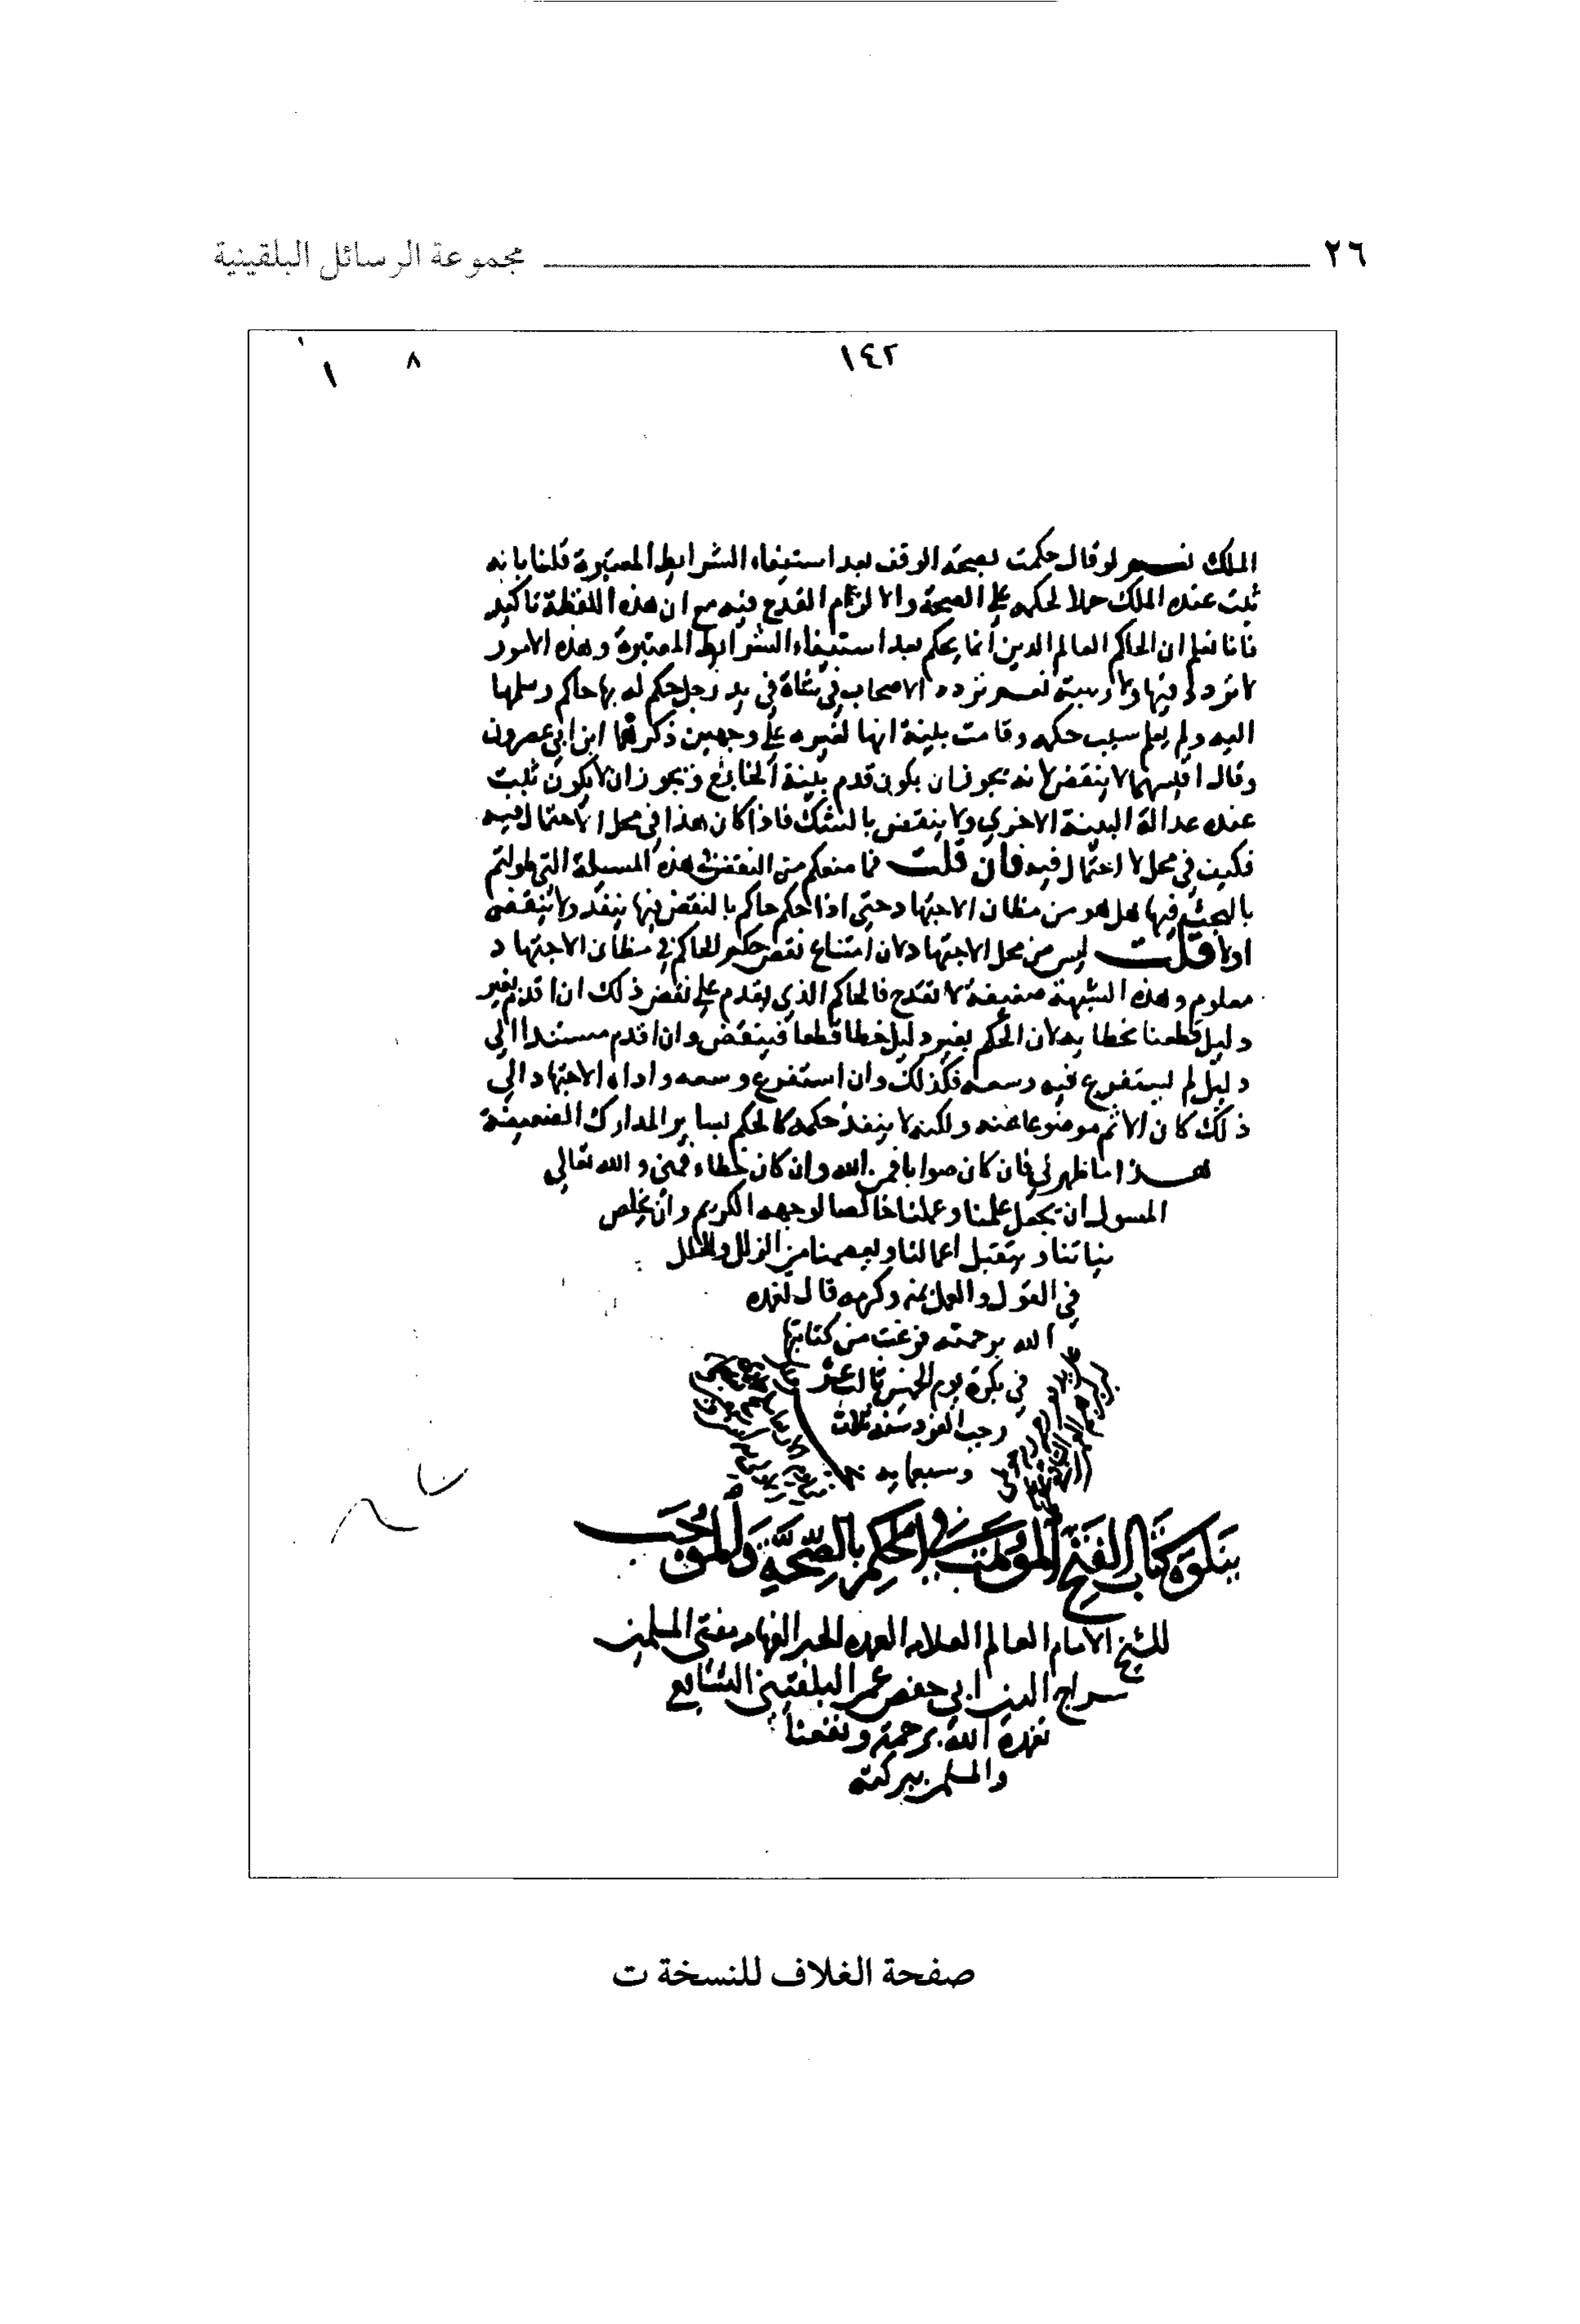 ٢٦
مجموعة الرسائل البلقينية
١٤٢
٨
١
الملك نعم لو قال حكمت بصحة الوقف بعد استيفاء الشرايط المعتبرة قلنا بانه
ثبت عنده الملك حملا لحكمه على الصحة والا لزم القدح فيه مع ان هذه اللفظة تاكيد
فانا نعلم ان الحاكم العالم الدين انما يحكم بعد استيفاء الشرايط المعتبرة وهذه الامور
لا تردد لي فيها ولا ريبة نعم تردد الاصحاب في شاة في يد رجل حكم له بها حاكم وسلمها
اليه ولم يعلم سبب حكمه وقامت بينة انها لغيره على وجهين ذكرهما ابن ابي عصرون
وقال اقيسهما لا ينقض لانه يجوز ان يكون قدم بينة الخارج ويجوز ان لا يكون ثبت
عنده عدالة البينة الاخرى ولا ينقض بالشك فاذا كان هذا في محل الاحتمال فيه
فكيف في محل لا احتمال فيه فان قلت فما منعكم من النقض في هذه المسيلة التي طولتم
بالبحث فيها هل هو من مظان الاجتهاد حتى اذا حكم حاكم بالنقض فيها ينفذ ولا ينقض
اولا قلت ليس من محل الاجتهاد لان امتناع نقض حكم الحاكم في مظان الاجتهاد
معلوم وهذه الشبهة ضعيفة لا تقدح فالحاكم الذي يقدم على نقض ذلك ان اقدم بغير
دليل قطعنا بخطا به لان الحكم بغير دليل خطا قطعا فينقض وان اقدم مستندا الى
دليل لم يستفرغ فيه وسعه فكذلك وان استفرغ وسعه واداه الاجتهاد الى
ذلك كان الاثم موضوعا عنه ولكنه لا ينفذ حكمه كالحكم بساير المدارك الضعيفة
هذا ما ظهر لي فان كان صوابا فمن الله وان كان خطاء فمني والله تعالى
المسول ان يجعل علمنا وعملنا خالصا لوجهه الكريم وان يخلص
نياتنا ويتقبل اعمالنا ويعصمنا من الزلل والخلل
في القول والعمل بمنه وكرمه قال تغمده
الله برحمته فرغت من كتابتها
في بكرة يوم الخميس ثالث عشر
رجب الفرد سنة ثلاث
وسبعمايه
يتلوه كتاب الفتح الموهب في الحكم بالصحة والموجب
للشيخ الامام العالم العلامه العمده الحبر الفهامه مفتي المسلمين
سراج الدين ابي حفص عمر البلقيني الشافعي
تغمده الله برحمته ونفعنا
والمسلمين ببركته
صفحة الغلاف للنسخة ت